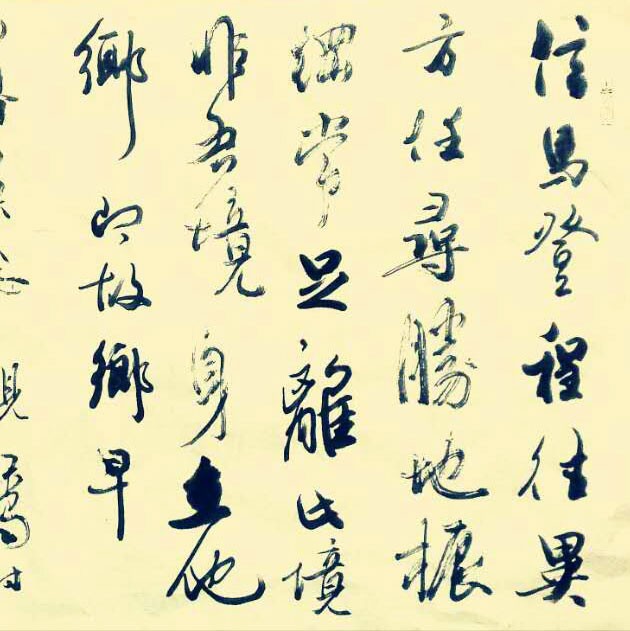 信馬登程往異
方任尋勝地振
綱常足離此境
非吾境身立他
鄉即故鄉早